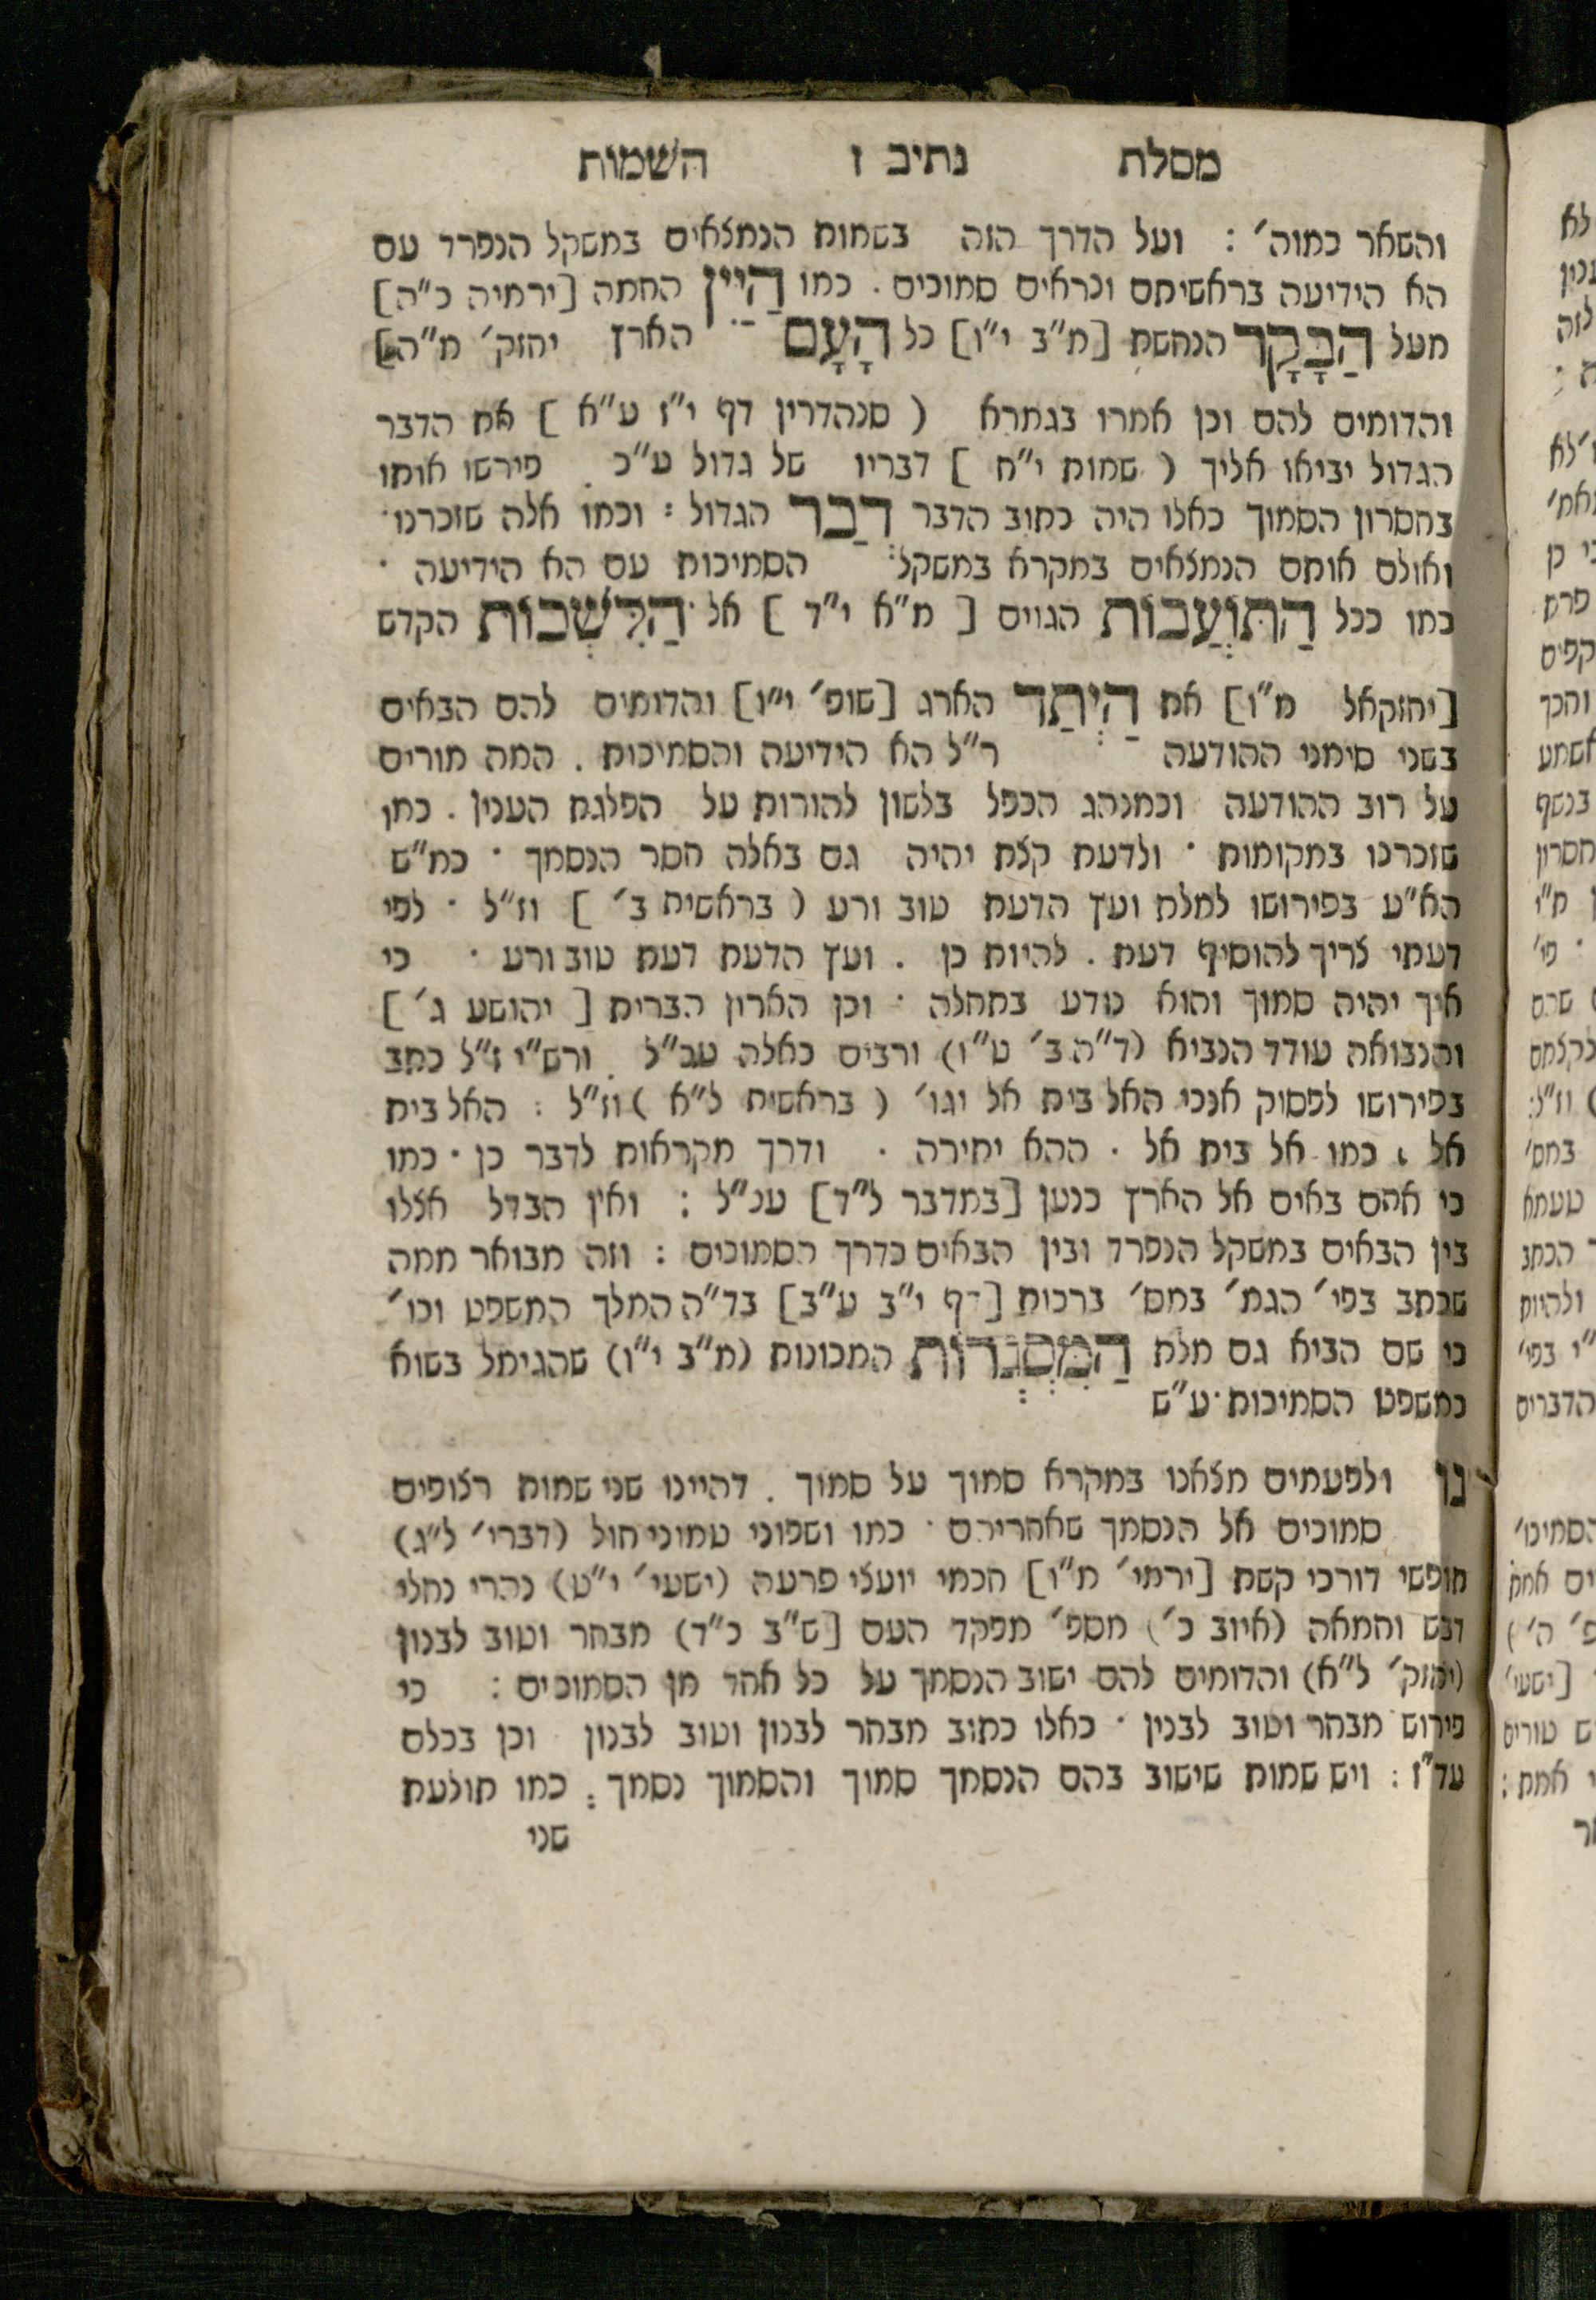 מסלת נתיב ז השמות
והשאר כמוה׳ : ועל הדרך הזה בשמות הנמצאים במשקל הנפרד עם
הא הידיעה בראשיתם ונראים סמוכים . כמו הַיַיִן החמה [ירמיה כ״ה]
מעל הַבָּקָר הנחשת [מ״ב י״ו] כל הָעָם הארץ יחזק׳ מ״ה]
והדומים להם וכן אמרו בגמרא ( סנהדרין דף י״ז ע״א ] את הדבר
הגדול יביאו אליך ( שמות י״ח ] דבריו של גדול ע״כ . פירשו אותו
בחסרון הסמוך כאלו היה כתוב הדבר דְבַר הגדול : וכמו אלה שזכרנו
ואולם אותם הנמצאים במקרא במשקל הסמיכות עם הא הידיעה ·
כמו ככל הַתּוֹעֲבוֹת הגוים [ מ״א י״ד ] אל הַלִּשְׁכוֹת הקדש
[יחזקאל מ״ו] את הַיְתַד הארג [שופ׳ י״ו] והדומים להם הבאים
בשני סימני ההודעה ר״ל הא הידיעה והסמיכות . המה מורים
על רוב ההודעה וכמנהג הכפל בלשון להורות על הפלגת הענין . כמו
שזכרנו במקומות · ולדעת קצת יהיה גם באלה חסר הנסמך · כמ״ש
הא״ע בפירושו למלת ועץ הדעת טוב ורע ( בראשית ב׳ ] וז״ל · לפי
דעתי צריך להוסיף דעת . להיות כן . ועץ הדעת דעת טוב ורע · כי
איך יהיה סמוך והוא נודע בתחלה · וכן הארון הברית [ יהושע ג׳ ]
והנבואה עודד הנביא (ד״ה ב׳ ט״ו) ורבים כאלה עכ״ל . ורש״י ז״ל כתב
בפירושו לפסוק אנכי האל בית אל וגו׳ ( בראשית ל״א ) וז״ל : האל בית
אל . כמו אל בית אל . ההא יתירה . ודרך מקראות לדבר כן · כמו
כי אתם באים אל הארץ כנען [במדבר ל״ד] עכ״ל : ואין הבדל אצלו
בין הבאים במשקל הנפרד ובין הבאים כדרך הסמוכים : וזה מבואר ממה
שכתב בפי׳ הגמ׳ במס׳ ברכות [דף י״ב ע״ב] בד״ה המלך המשפט וכו׳
כי שם הביא גם מלת הַמִּסְגְּרוֹת המכונות (מ״ב י״ו) שהגימל בשוא
כמשפט הסמיכות · ע״ש
נו ולפעמים מצאנו במקרא סמוך על סמוך . דהיינו שני שמות רצופים
סמוכים אל הנסמך שאחריהם · כמו ושפוני טמוני חול (דברי׳ ל״ג)
תופשי דורכי קשת [ירמי׳ מ״ו] חכמי יועצי פרעה (ישעי׳ י״ט) נהרי נחלי
דבש וחמאה (איוב כ׳) מספ׳ מפקד העם [ש״ב כ״ד) מבחר וטוב לבנון
(יחזק׳ ל״א) והדומים להם ישוב הנסמך על כל אחד מן הסמוכים : כי
פירוש מבחר וטוב לבנין · כאלו כתוב מבחר לבנון וטוב לבנון וכן בכלם
עד״ז : ויש שמות שישוב בהם הנסמך סמוך והסמוך נסמך : כמו תולעת
שני